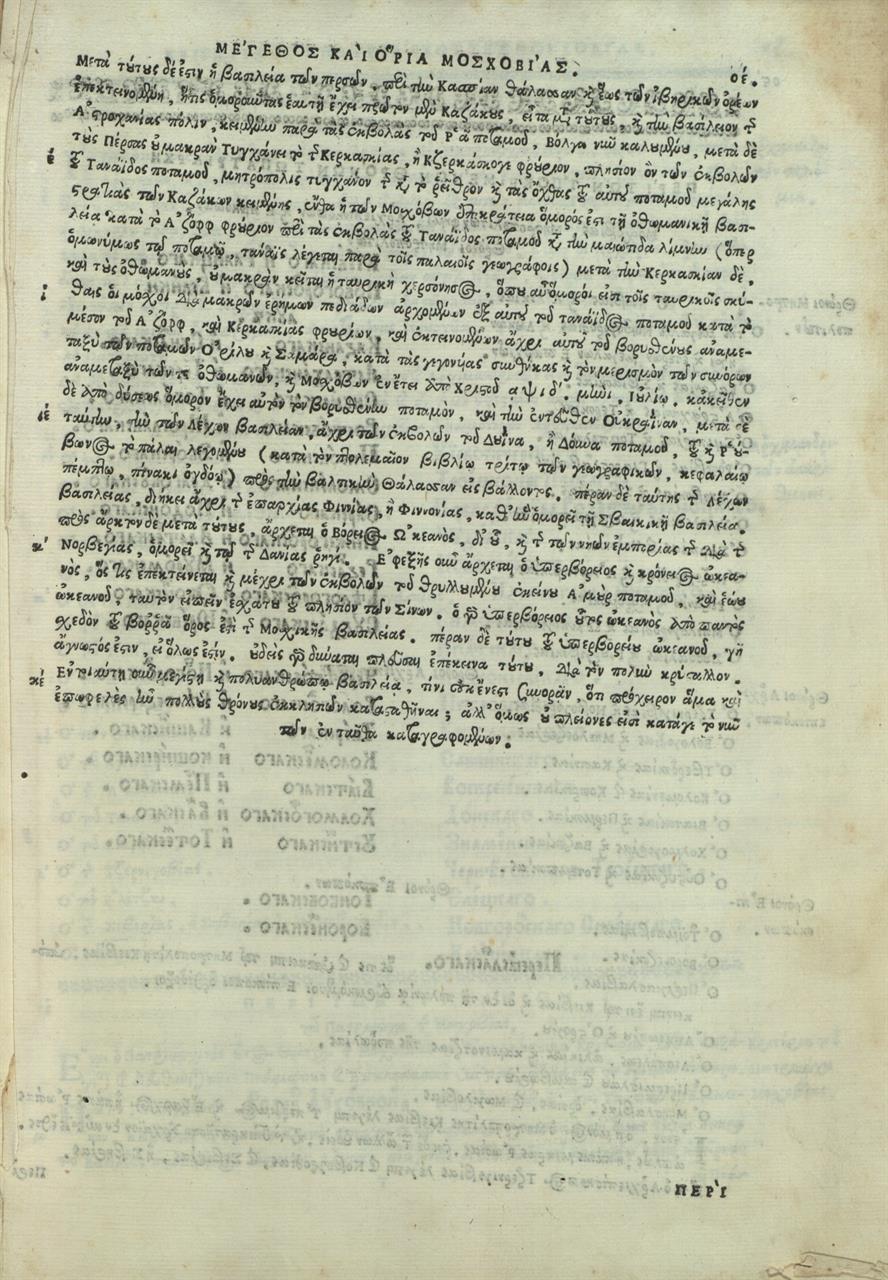 ΜΕΓΕΘΟΣ ΚΑῚ ὉΡΙΑ ΜΟΣΧΟΒΙΑΣ.
οέ.
Μετὰ τούτους δέ ἐστιν ἡ βασιλεία τῶν περσῶν, περὶ τὴν Κασπίαν θάλασσαν καὶ ἕως τῶν ἰβηρικῶν ὀρέων
ἐπεκτεινομένη, ἥτις ὁμοροῦντας ἑαυτῇ ἔχει πρῶτον μὲν Καζάκους, εἶτα μετὰ τούτους, καὶ τὴν βασίλειον τῆς
Ἀστροχανίας πόλιν, κειμένην παρὰ τὰς ἐκβολὰς τοῦ Ῥᾶ ποταμοῦ, Βόλγα νῦν καλουμένου, μετὰ δὲ
τοὺς Πέρσας οὐ μακρὰν Τυγχάνει τὸ τῆς Κερκασκίας, ἢ Κζερκάσκογε φρούριον, πλησίον ὂν τῶν ἐκβολῶν
έ τοῦ Τανάϊδος ποταμοῦ, μητρόπολις τυγχάνον τῆς κατὰ τὸ ῥεῖθρον καὶ τὰς ὄχθας τοῦ αὐτοῦ ποταμοῦ μεγάλης
στρατιᾶς τῶν Καζάκων κειμένης, ἔνθα ἡ τῶν Μοσχόβων ἐπικράτεια ὅμορός ἐστι τῇ ὀθωμανικῇ βασι-
λείᾳ κατὰ τὸ Ἀζὸφ φρούριον περὶ τὰς ἐκβολὰς τοῦ Τανάϊδος ποταμοῦ καὶ τὴν μαιώτιδα λίμνην (ὅπερ
ὁμωνύμως τῷ ποταμῷ, τανάϊς λέγεται παρὰ τοῖς παλαιοῖς γεωγράφοις) μετὰ τὴν Κερκασκίαν δὲ,
καὶ τοὺς ὀθωμανοὺς, οὐ μακρὰν κεῖται ἡ ταυρικὴ χερσόνησος, ὅπου αὖ ὅμοροί εἰσι τοῖς ταυρικοῖς σκύ-
ί θαις οἱ μόσχοι διὰ μακρῶν ἐρήμων πεδιάδων ἀρχομένων ἐξ αὐτοῦ τοῦ τανάϊδος ποταμοῦ κατὰ τὸ
μέσον τοῦ Ἀζὸφ, καὶ Κερκασκίας φρουρίων, καὶ ἐκτεινομένων ἄχρι αὐτοῦ τοῦ βορυσθένους ἀναμε-
ταξὺ τῶν ποταμῶν Ὀρίλου καὶ Σαμάρα, κατὰ τὰς γεγονυίας συνθήκας καὶ τὸν μερισμὸν τῶν συνόρων
ἀναμεταξὺ τῶν τε ὀθωμανῶν, καὶ Μοσχόβων ἐν ἔτει ἀπὸ Χριστοῦ αψιδ΄. μηνὶ, Ἰουλίῳ, κἀκεῖθεν
δὲ ἀπὸ δύσεως ὅμορον ἔχει αὐτὸν τὸν βορυσθένην ποταμὸν, καὶ τὴν ἐντεῦθεν Οὐκραΐναν, μετὰ δὲ
ιέ ταύτην, τὴν τῶν Λέχων βασιλείαν, ἄχρι τῶν ἐκβολῶν τοῦ Δυΐνα, ἢ Δούνα ποταμοῦ, τοῦ καὶ Ῥού-
βωνος τὸ πάλαι λεγομένου (κατὰ τὸν πτολεμαῖον βιβλίῳ τρίτῳ τῶν γεωγραφικῶν, κεφαλαίῳ
πέμπτῳ, πίνακι ὀγδόῳ) πρὸς τὴν βαλτικὴν Θάλασσαν εἰσβάλλοντος. πέραν δὲ ταύτης τῆς Λέχων
βασιλείας, διήκει ἄχρι τῆς ἐπαρχίας Φινιίας, ἢ Φιννονίας, καθ' ἣν ὁμορεῖ τῇ Σβαικικῇ βασιλείᾳ.
πρὸς ἄρκτον δὲ μετὰ τούτους, ἄρχεται ὁ Βόρειος Ὠκεανὸς, δι' οὗ, καὶ τῆς τῶν νηῶν ἐμπορίας τῆς διὰ τῆς
κ΄ Νορβεγίας, ὁμορεῖ καὶ τῷ τῆς Δανίας ῥηγί. Ἐφεξῆς οὖν ἄρχεται ὁ ὑπερβόρειος καὶ κρόνειος ὠκεα-
νὸς, ὅστις ἐπεκτείνεται καὶ μέχρι τῶν ἐκβολῶν τοῦ θρυλλουμένου ἐκείνου Ἀμουρ ποταμοῦ, καὶ ἑῴου
ὠκεανοῦ, ταυτὸν εἰπεῖν ἐσχάτου τοῦ πλησίον τῶν Σίνων. ὁ γὰρ ὑπερβόρειος οὗτος ὠκεανὸς ἀπὸ παντὸς
σχεδὸν τοῦ βορρᾶ ὅρος ἐστὶ τῆς Μοσχικῆς βασιλείας. πέραν δὲ τούτου τοῦ ὑπερβορείου ὠκεανοῦ, γῆ
ἄγνωστός ἐστιν, εἰ ὅλως ἐστίν. οὐδεὶς γὰρ δύναται πλεῦσαι ἐπέκεινα τούτου, διὰ τὸν πολὺν κρύσταλλον.
κέ Ἐν τοιαύτῃ οὖν μεγίστῃ καὶ πολυανθρώπῳ βασιλείᾳ, τίνι οὐκ ἔνεστι συνορᾶν, ὅτι πρόχειρον ἅμα καὶ
ἐπωφελὲς ἦν πολλοὺς θρόνους ἐκκλησιῶν κατασταθῆναι; ἀλλ' ὅμως οὐ πλείονές εἰσὶ κατάγε τὸ νῦν
τῶν ἐνταῦθα καταγραφομένων.
ΠΕΡῚ